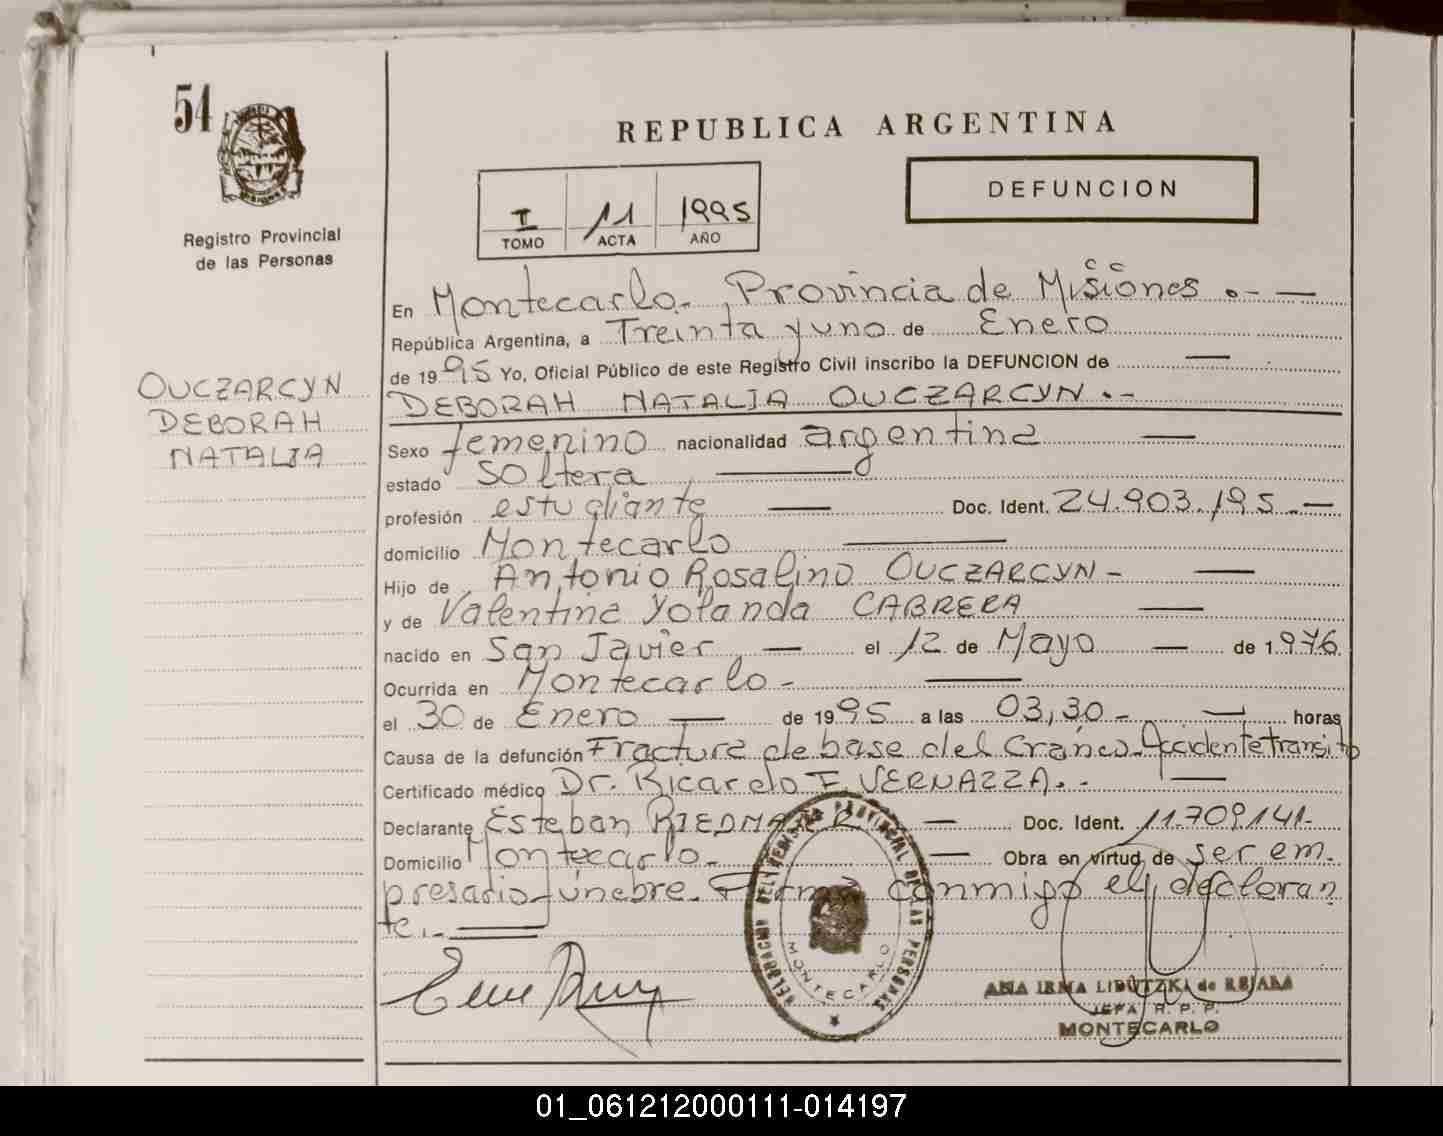 54
Registro Provincial
de las Personas
OUCZARCYN
DEBORAH
NATALIA
REPUBLICA ARGENTINA
I 11 1995
TOMO ACTA AÑO
DEFUNCION
En Montecarlo.- Provincia de Misiones .- —
República Argentina, a Treinta y uno de Enero
de 1995 Yo, Oficial Público de este Registro Civil inscribo la DEFUNCION de —
DEBORAH NATALIA OUCZARCYN.-
Sexo femenino nacionalidad argentina —
estado soltera —
profesión estudiante — Doc. Ident. 24.903.195.-
domicilio Montecarlo —
Hijo de Antonio Rosalino OUCZARCYN - —
y de Valentina Yolanda CABRERA —
nacido en San Javier — el 12 de Mayo — de 1.976
Ocurrida en Montecarlo - —
el 30 de Enero — de 1995 a las 03,30 - — horas
Causa de la defunción Fractura de base del Craneo-Accidente transito
Certificado médico Dr. Ricardo F. VERNAZZA.- —
Declarante Esteban RIEDMAIER — Doc. Ident. 11.709.141-
Domicilio Montecarlo.- — Obra en virtud de ser em-
presario fúnebre. Firma conmigo el declaran
te.- —
DEL REGISTRO PROVINCIAL DE LAS PERSONAS
MONTECARLO
ANA IRMA LIBUTZKI de REJALA
JEFA R. P. P.
MONTECARLO
01_061212000111-014197